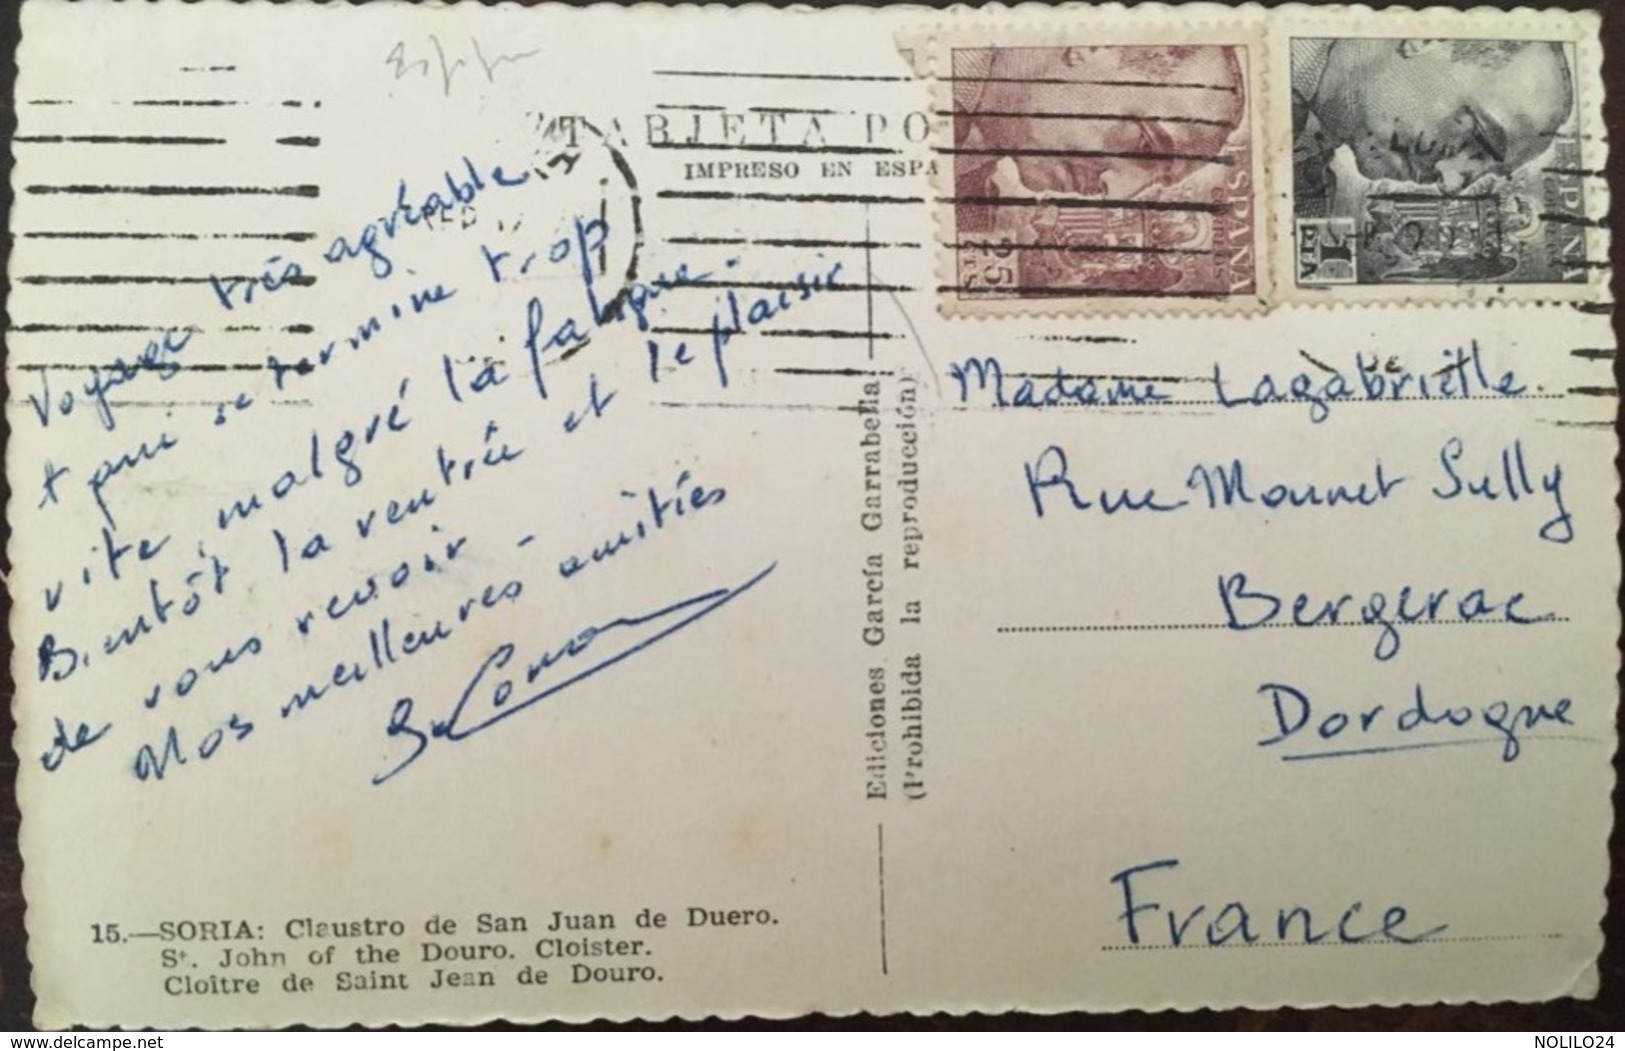 TARJETA PO
IMPRESO EN ESPA
ESPAÑA
25
CTS
ESPAÑA
1
PTA
Voyage très agréable
+ qui se termine trop
vite, malgré la fatigue.
Bientôt la rentrée et le plaisir
de vous revoir -
Nos meilleures amitiés
Madame Lagabrielle
Rue Mounet Sully
Bergerac
Dordogne
France
Ediciones García Garrabella
(Prohibida la reproducción)
15.—SORIA: Claustro de San Juan de Duero.
St. John of the Douro. Cloister.
Cloître de Saint Jean de Douro.
www.delcampe.net
NOLILO24